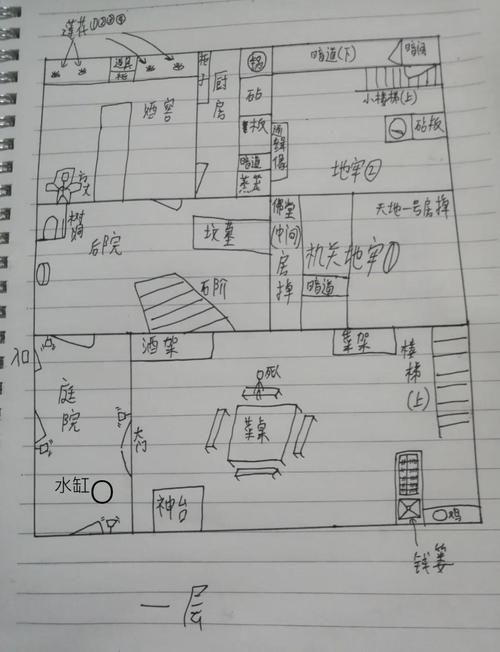 莲花①②③④
道具
柜
柜子
厨房
锅
暗道(下)
暗阁
小楼梯(上)
酒窖
砧
板
暗道
蒸笼
通缉像
砧板
地牢②
方丈
树
后院
坟墓
石阶
佛堂
(中间)
房掉
机关地牢①
暗道
天地一号房掉
入口
酒架
菜架
楼梯
(上)
庭院
大门
死人
菜桌
水缸
神台
鸡
钱篓
一层